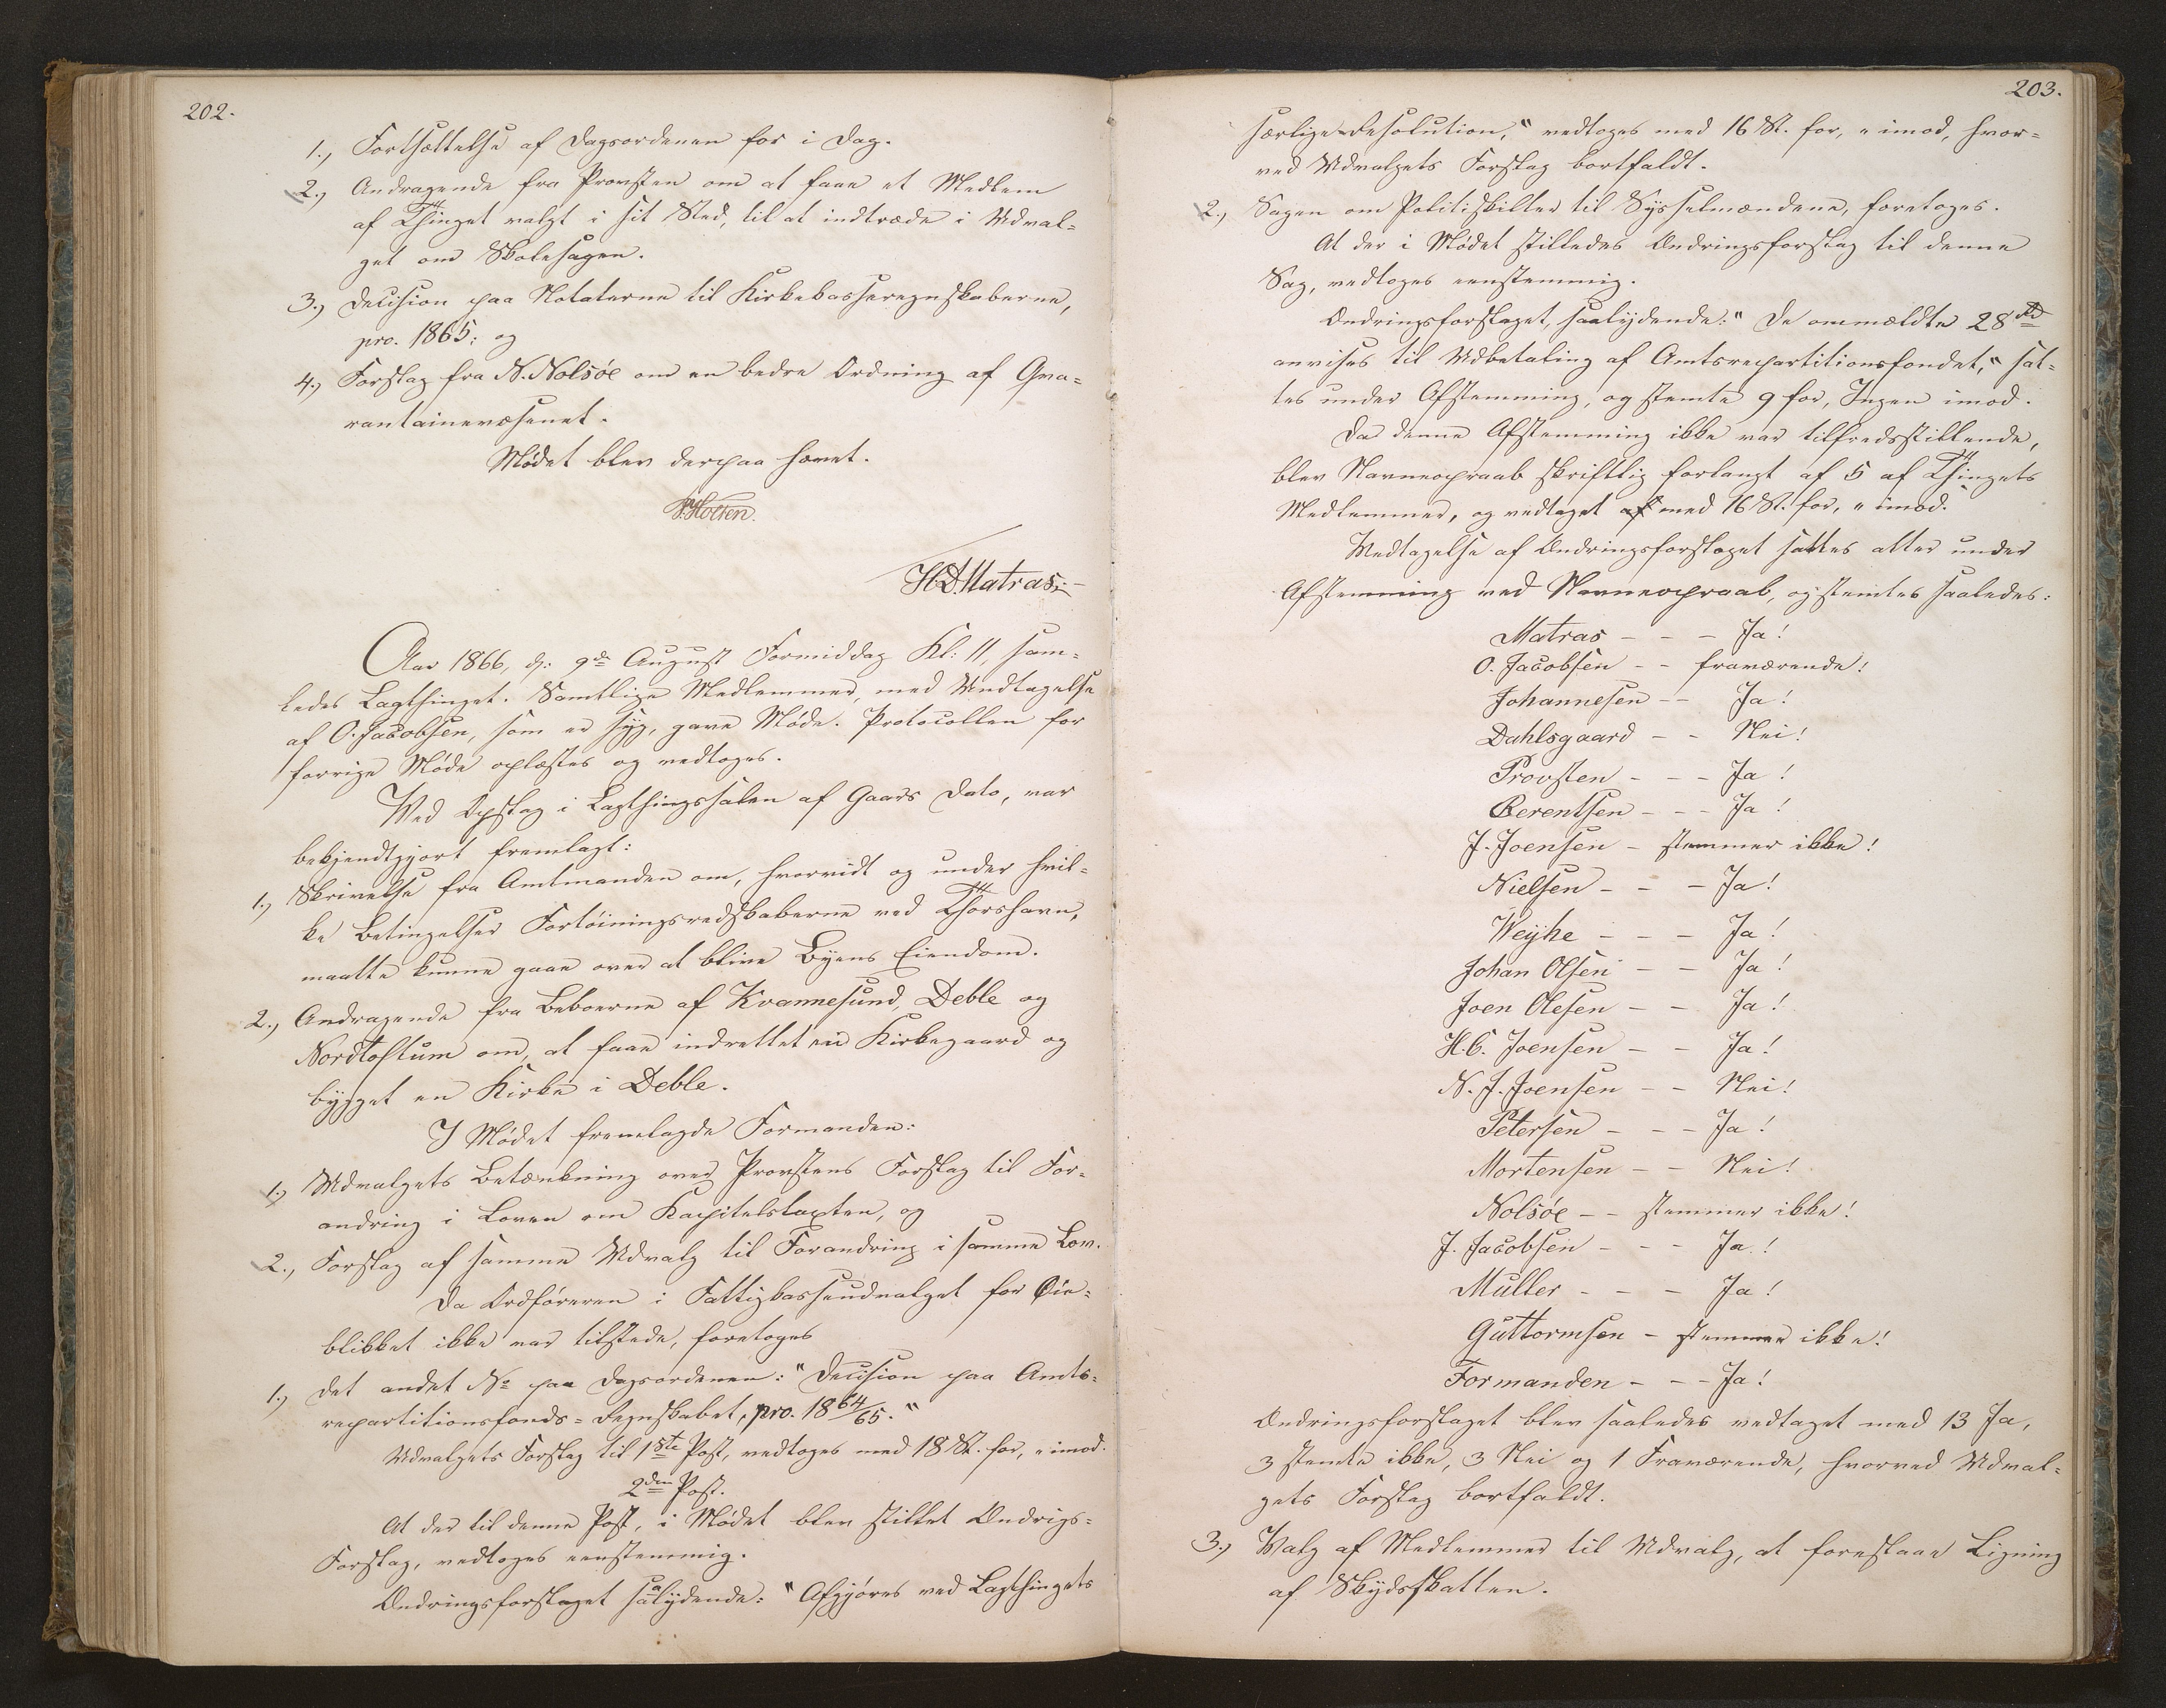 202.
1., Fortsættelse af Dagsordenen for i Dag.
2., Andragende fra Provsten om at faae et Medlem
af Thinget valgt i sit Sted, til at indtræde i Udval-
get om Skolesagen.
3., Decision paa Notaterne til Kirkekasseregnskaberne,
pro. 1865; og
4., Forslag fra N. Nolsøe om en bedre Ordning af Qva-
rantainevæsenet.
Mødet blev derpaa hævet.
Holten.
H.D. Matras.
Aar 1866, d: 9de August Formiddag Kl: 11, sam-
ledes Lagthinget. Samtlige Medlemmer, med Undtagelse
af O. Jacobsen, som er syg, gave Møde. Protocollen for
forrige Møde oplæstes og vedtoges.
Ved Opslag i Lagthingssalen af Gaars Dato, var
bekjendtgjort fremlagt:
1., Skrivelse fra Amtmanden om, hvorvidt og under hvil-
ke Betingelser Fortøiningsredskaberne ved Thorshavn,
maatte kunne gaae over at blive Byens Eiendom.
2., Andragende fra Beboerne af Kvannesund, Deble og
Nordtoftum om, at faae indrettet en Kirkegaard og
bygget en Kirke i Deble.
I Mødet fremlagde Formanden:
1., Udvalgets Betænkning over Provstens Forslag til For-
andring i Loven om Kapitelstaxten, og
2., Forslag af samme Udvalg til Forandring i samme Lov.
Da Ordføreren i Fattigkasseudvalget for Øie-
blikket ikke var tilstede, foretoges
1., det andet No paa Dagsordenen: "Decision paa Amts-
repartitionsfonds-Regnskabet, pro. 1864/65."
Udvalgets Forslag til 1ste Post, vedtoges med 18 St. for, " imod.
2den Post.
At der til denne Post, i Mødet blev stillet Ændrigs-
Forslag, vedtoges eenstemmig.
Ændringsforslaget saalydende: "Afgjøres ved Lagthingets
203.
særlige Resolution," vedtoges med 16 St. for, " imod, hvor-
ved Udvalgets Forslag bortfaldt.
2., Sagen om Politiskilter til Sysselmændene, foretoges.
At der i Mødet stilledes Ændringsforslag til denne
Sag, vedtoges eenstemmig.
Ændringsforslaget, saalydende: "De anmældte 28 Rd
anvises til Udbetaling af Amtsrepartitionsfondet," sat-
tes under Afstemming, og stemte 9 for, Ingen imod.
Da denne Afstemming ikke var tilfredsstillende,
blev Navneopraab skriftlig forlangt af 5 af Thingets
Medlemmer, og vedtaget af med 16 St. for, " imod.
Vedtagelse af Ændringsforslaget sattes atter under
Afstemming ved Navneopraab, og stemtes saaledes:
Matras - - - Ja!
O. Jacobsen - - fraværende!
Johannesen - - Ja!
Dahlsgaard - - Nei!
Provsten - - - Ja!
Berentsen - - - Ja!
J. Joensen - stemmer ikke!
Nielsen - - - Ja!
Weyhe - - - Ja!
Johan Olsen - - Ja!
Joen Olesen - - Ja!
H.C. Joensen - - Ja!
N. J. Joensen - - Nei!
Petersen - - - Ja!
Mortensen - - Nei!
Nolsøe - - stemmer ikke!
J. Jacobsen - - - Ja!
Muller - - - Ja!
Guttormsen - stemmer ikke!
Formanden - - - Ja!
Ændringsforslaget blev saaledes vedtaget med 13 Ja,
3 stemte ikke, 3 Nei og 1 Fraværende, hvorved Udval-
gets Forslag bortfaldt.
3., Valg af Medlemmer til Udvalg, at forestaae Ligning
af Skydsskatten.